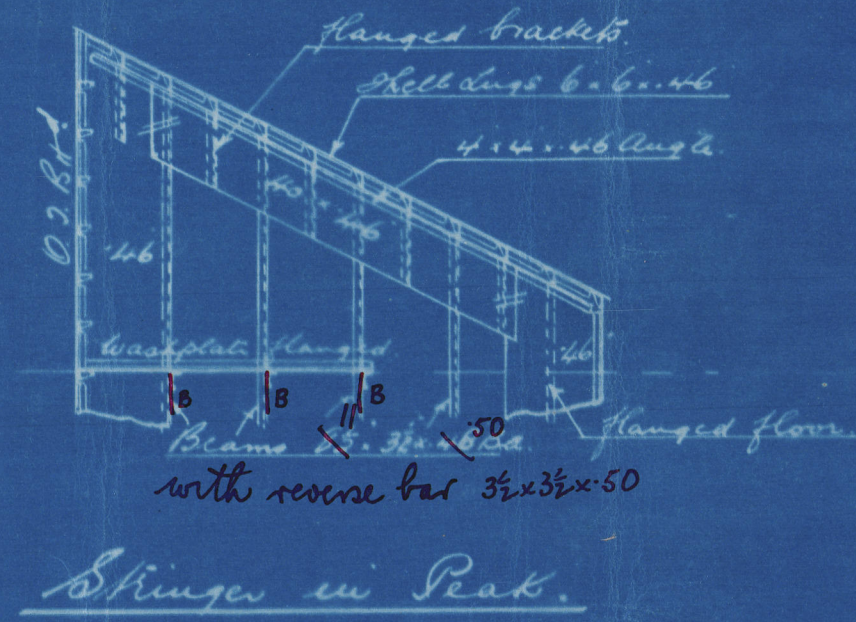 Flanged brackets.
Shell Lugs 6 × 6 × .46
4 × 4 × .46 Angle.
40 × .46
.46
Washplate flanged.
.46
B B B
11 .50
Beams × 3½ × .46
Flanged floor.
with reverse bar 3½ × 3½ × .50
Stringer in Peak.